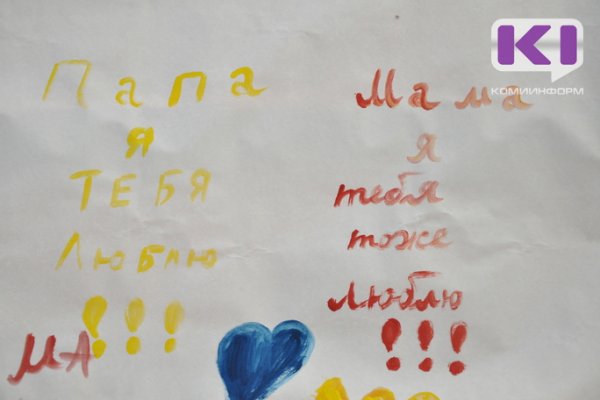 Папа
я
ТЕБЯ
Люблю
!!!
Мама
я
тебя
тоже
люблю
!!!
МА
KI
КОМИИНФОРМ